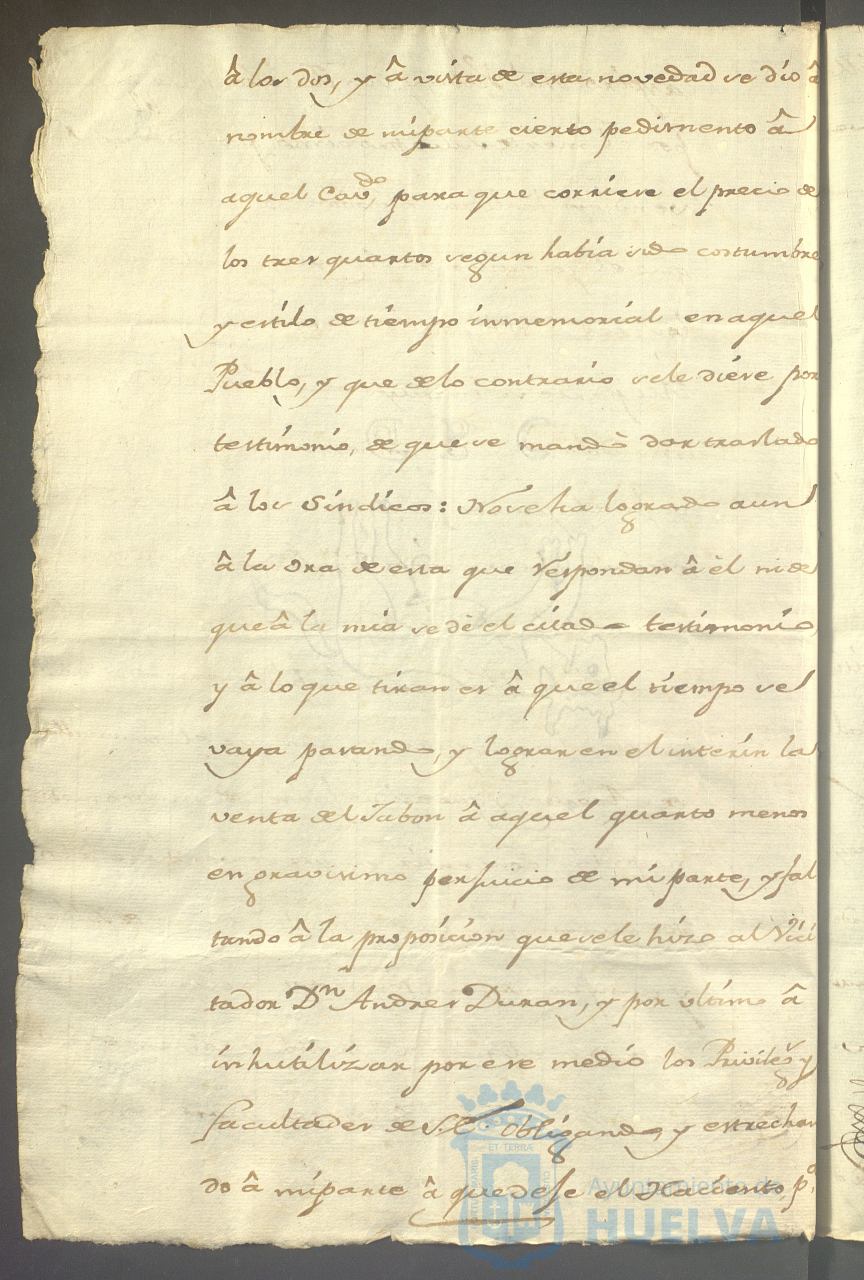 â los dos, y â vista de esta novedad se dio â
nombre de mi parte cierto pedimento â
aquel Cavdo, para que corriese el precio de
los tres quartos segun habia sido costumbre
y estilo de tiempo inmemorial en aquel
Pueblo, y que de lo contrario se le diese por
testimonio, de que se mandò dar traslado
â los Sindicos: No se ha logrado aun
â la ora de esta que respondan â èl ni de
que â la mia se dè el citado testimonio,
y â lo que tiran es â que el tiempo se
vaya pasando, y lograr en el interin la
venta del Jabon â aquel quarto menos
en gravisimo perjuicio de mi parte, y fal
tando â la proposicion que se le hizo al Vici
tador Dn Andres Duran, y por ultimo â
inhutilizar por ese medio los Privilegs y
facultades de S.E. obligando, y estrechan
do â mi parte â que dese el Haciento, po.
ET TERRÆ
Ayuntamiento de
HUELVA